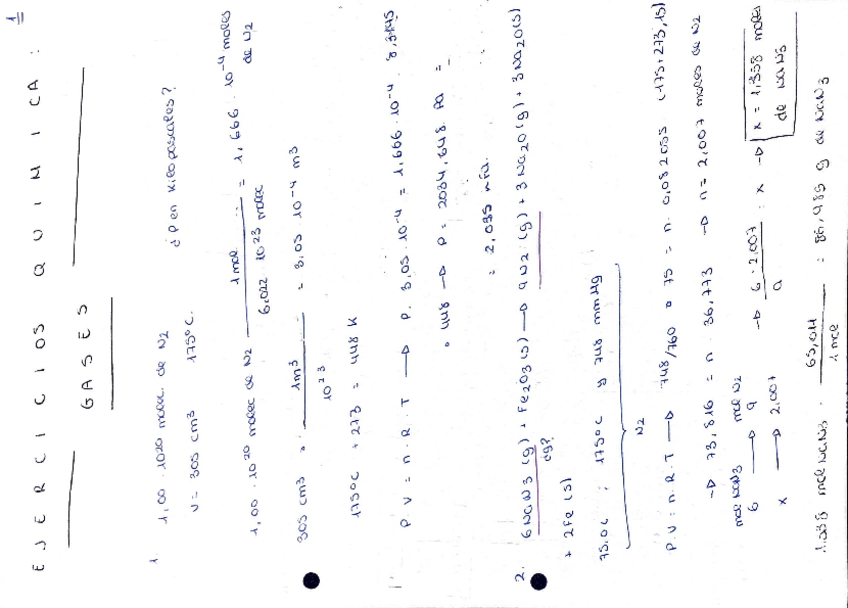 1
EJERCICIOS QUIMICA:
GASES
1. 1,00 · 10 20 molec. de N2 ¿P en kilopascales?
V = 305 cm3 175ºC.
1,00 · 10 20 molec de N2 · 1 mol / 6,022 · 10 23 molec = 1,666 · 10 -4 moles de N2
305 cm3 · 1m3 / 10 = 3,05 · 10 -4 m3
175ºC + 273 = 448 K
P · V = n · R · T → P · 3,05 · 10 -4 = 1,666 · 10 -4 · 8,3145
· 448 → P = 2034,648 Pa =
= 2,035
2. 6 NaN3 (g) + Fe2O3 (s) → 9 N2 (g) + 3 Na2O (g) + 3 Na2O (s)
¿g?
+ 2 Fe (s)
75.0 L ; 175ºC y 748 mmHg
N2
P · V = n · R · T → 748/760 · 75 = n · 0,082 (175+273,15)
→ 73,816 = n · 36,773 → n = 2,007 moles de N2
mol NaN3 mol N2
6 → 9 → 6 · 2,007 / 9 = x → x = 1,338 moles de NaN3
x → 2,007
1.338 mol NaN3 · 65,011 / 1 mol = 86,985 g de NaN3